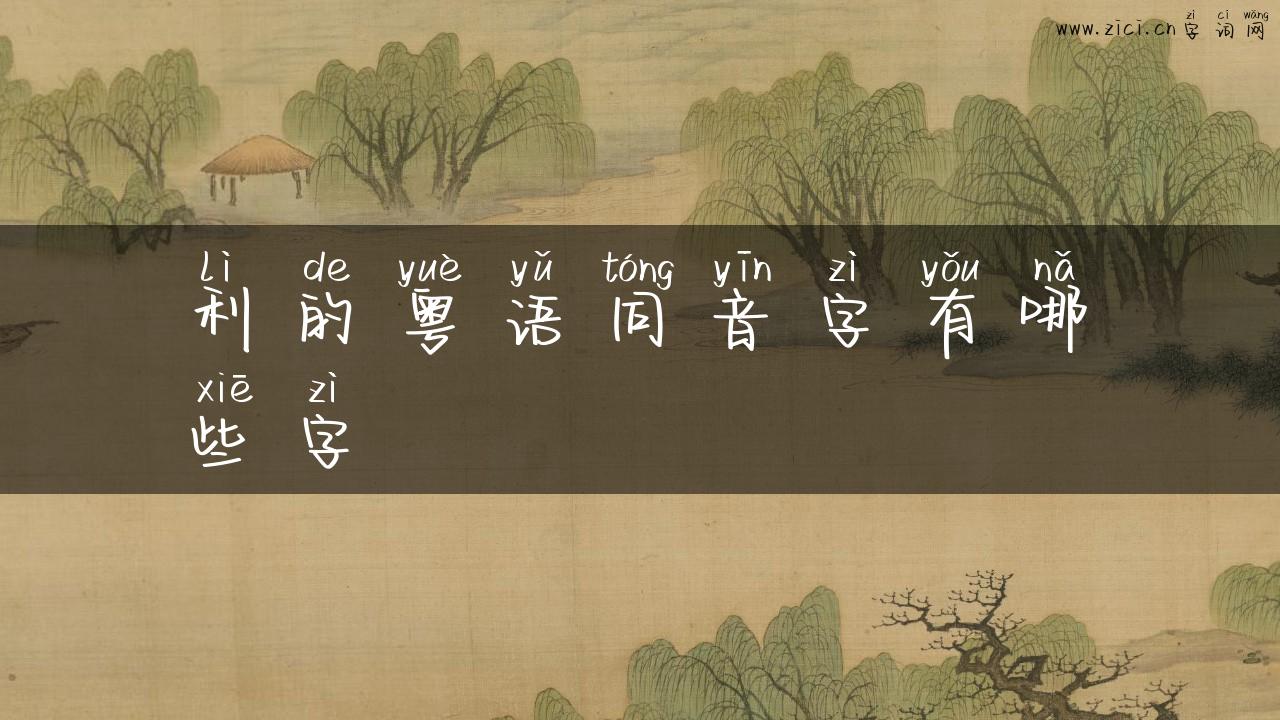 zì cí wǎng
www.zici.cn 字 词 网
lì de yuè yǔ tóng yīn zì yǒu nǎ
利 的 粤 语 同 音 字 有 哪
xiē zì
些 字